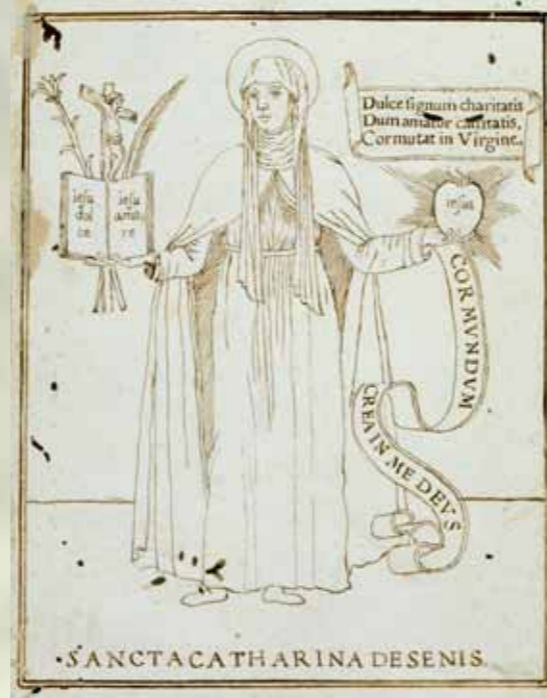 Dulce signum charitatis
Dum amator castitatis,
Cor mutat in Virgine.
iesu
dul
ce
iesu
amo
re
iesus
COR MVNDVM
CREA IN ME DEVS
SANCTA CATHARINA DE SENIS